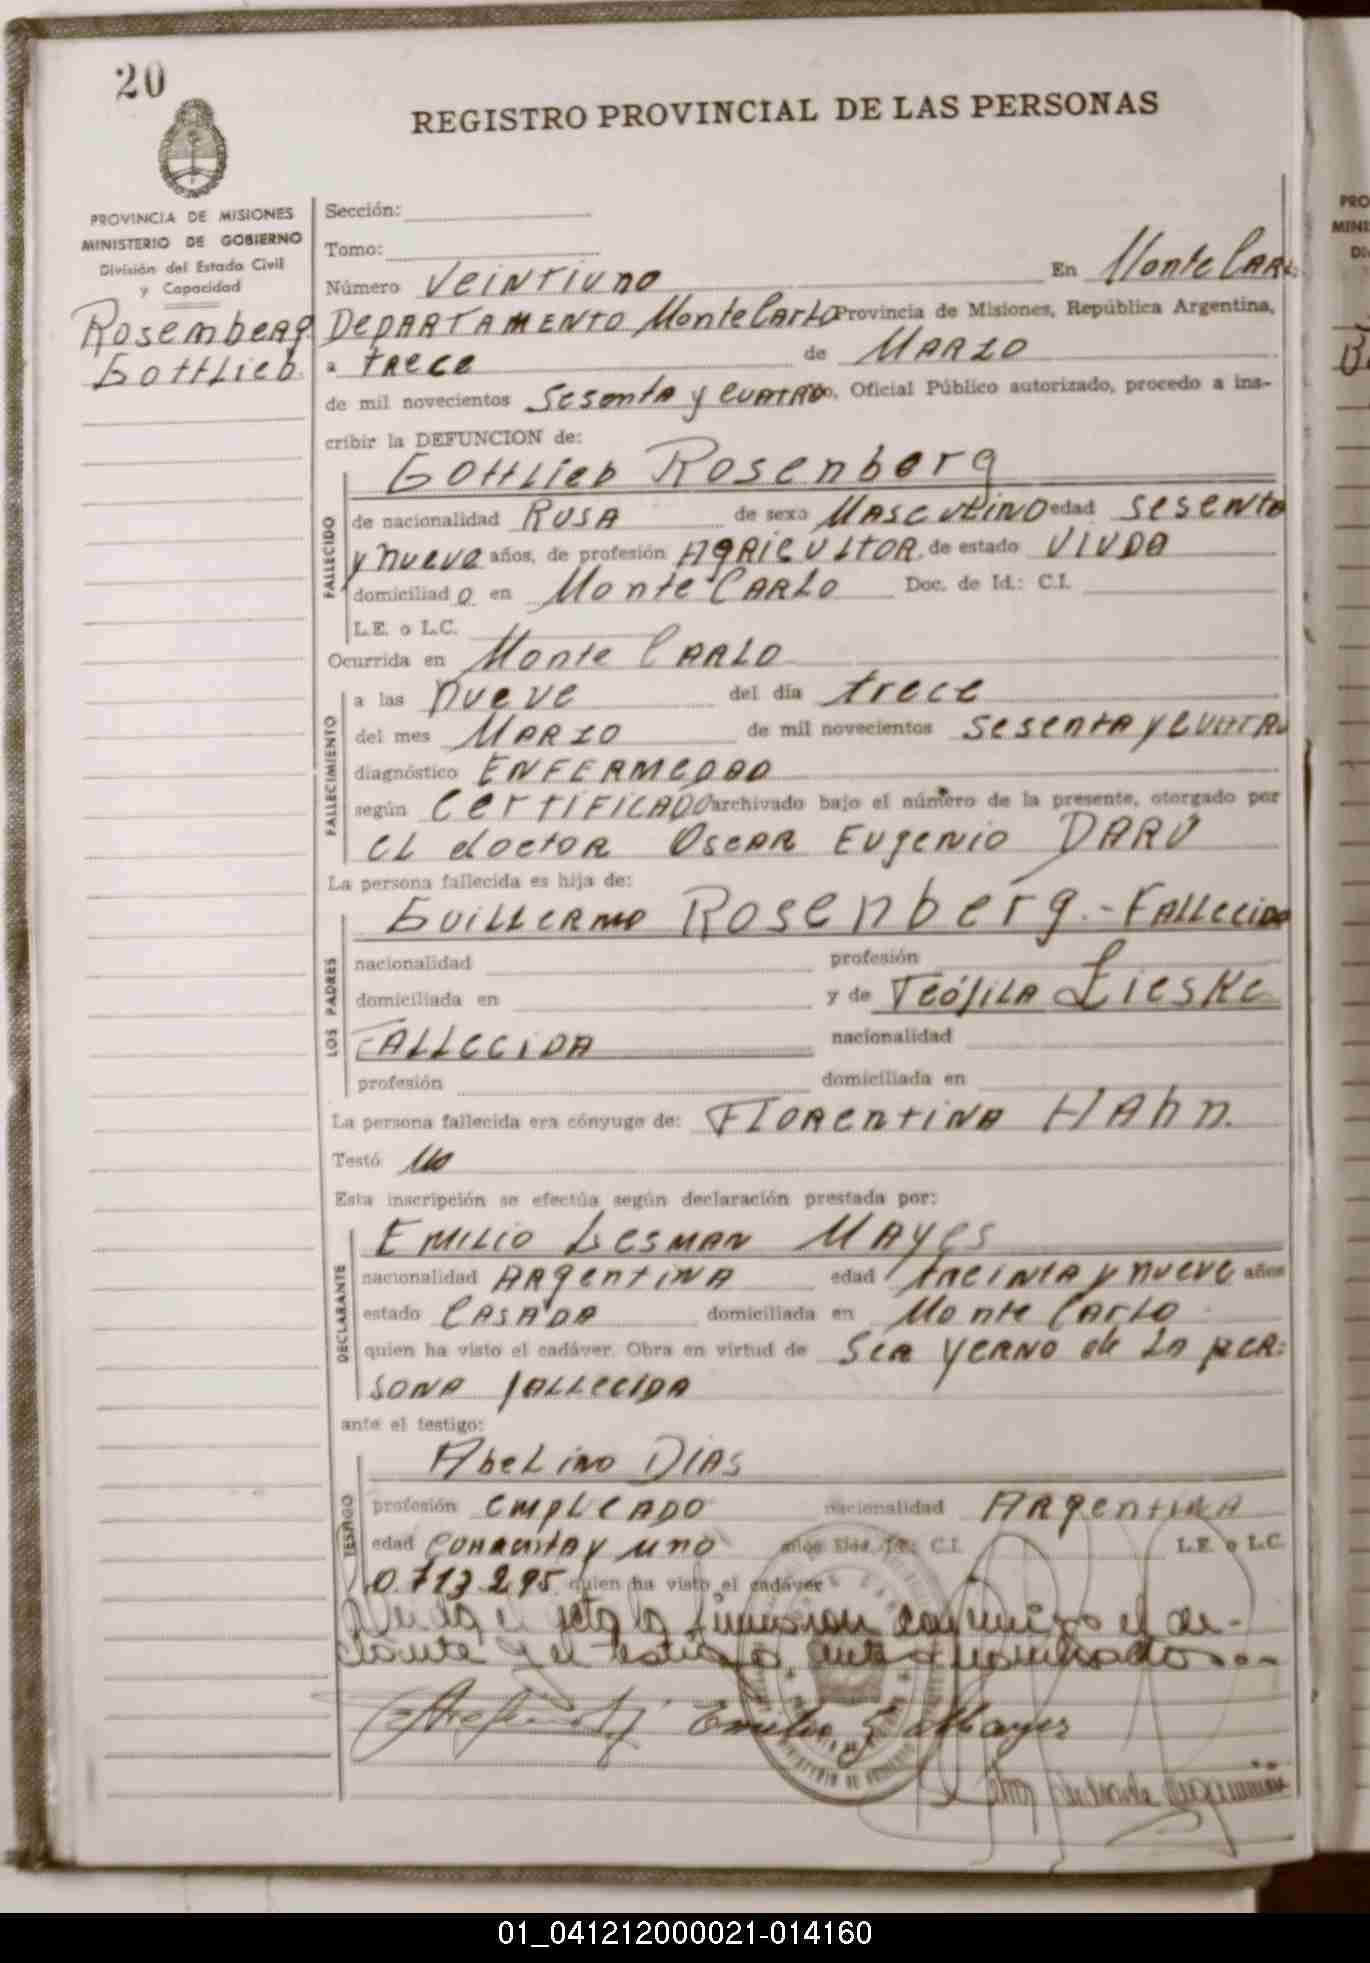 20
REGISTRO PROVINCIAL DE LAS PERSONAS
PROVINCIA DE MISIONES
MINISTERIO DE GOBIERNO
División del Estado Civil
y Capacidad
Rosemberg
Gottlieb
Sección:
Tomo:
Número Veintiuno En Monte Carlo
Departamento Monte Carlo Provincia de Misiones, República Argentina,
a trece de Marzo
de mil novecientos sesenta y cuatro, Oficial Público autorizado, procedo a ins-
cribir la DEFUNCION de:
Gottlieb Rosenberg
FALLECIDO
de nacionalidad Rusa de sexo Masculino edad sesenta
y nueve años, de profesión Agricultor de estado Viuda
domiciliado en Monte Carlo Doc. de Id.: C.I.
L.E. o L.C.
Ocurrida en Monte Carlo
FALLECIMIENTO
a las nueve del día trece
del mes Marzo de mil novecientos sesenta y cuatro
diagnóstico Enfermedad
según Certificado archivado bajo el número de la presente, otorgado por
el doctor Oscar Eugenio Darú
La persona fallecida es hija de:
LOS PADRES
Guillermo Rosenberg.- Fallecido
nacionalidad profesión
domiciliada en y de Teófila Lieske
Fallecida nacionalidad
profesión domiciliada en
La persona fallecida era cónyuge de: Florentina Hahn.
Testó No
Esta inscripción se efectúa según declaración prestada por:
DECLARANTE
Emilio Lesman Mayes
nacionalidad Argentina edad treinta y nueve años
estado Casada domiciliada en Monte Carlo
quien ha visto el cadáver. Obra en virtud de ser yerno de la per-
sona fallecida
ante el testigo:
TESTIGO
Abelino Dias
profesión Empleado nacionalidad Argentina
edad cuarenta y uno años C.I. L.E. o L.C.
0.713.295 quien ha visto el cadáver
el acta la firmaron conmigo el de-
clarante y el testigo antes nombrados
Emilio L Mayer
01_041212000021-014160